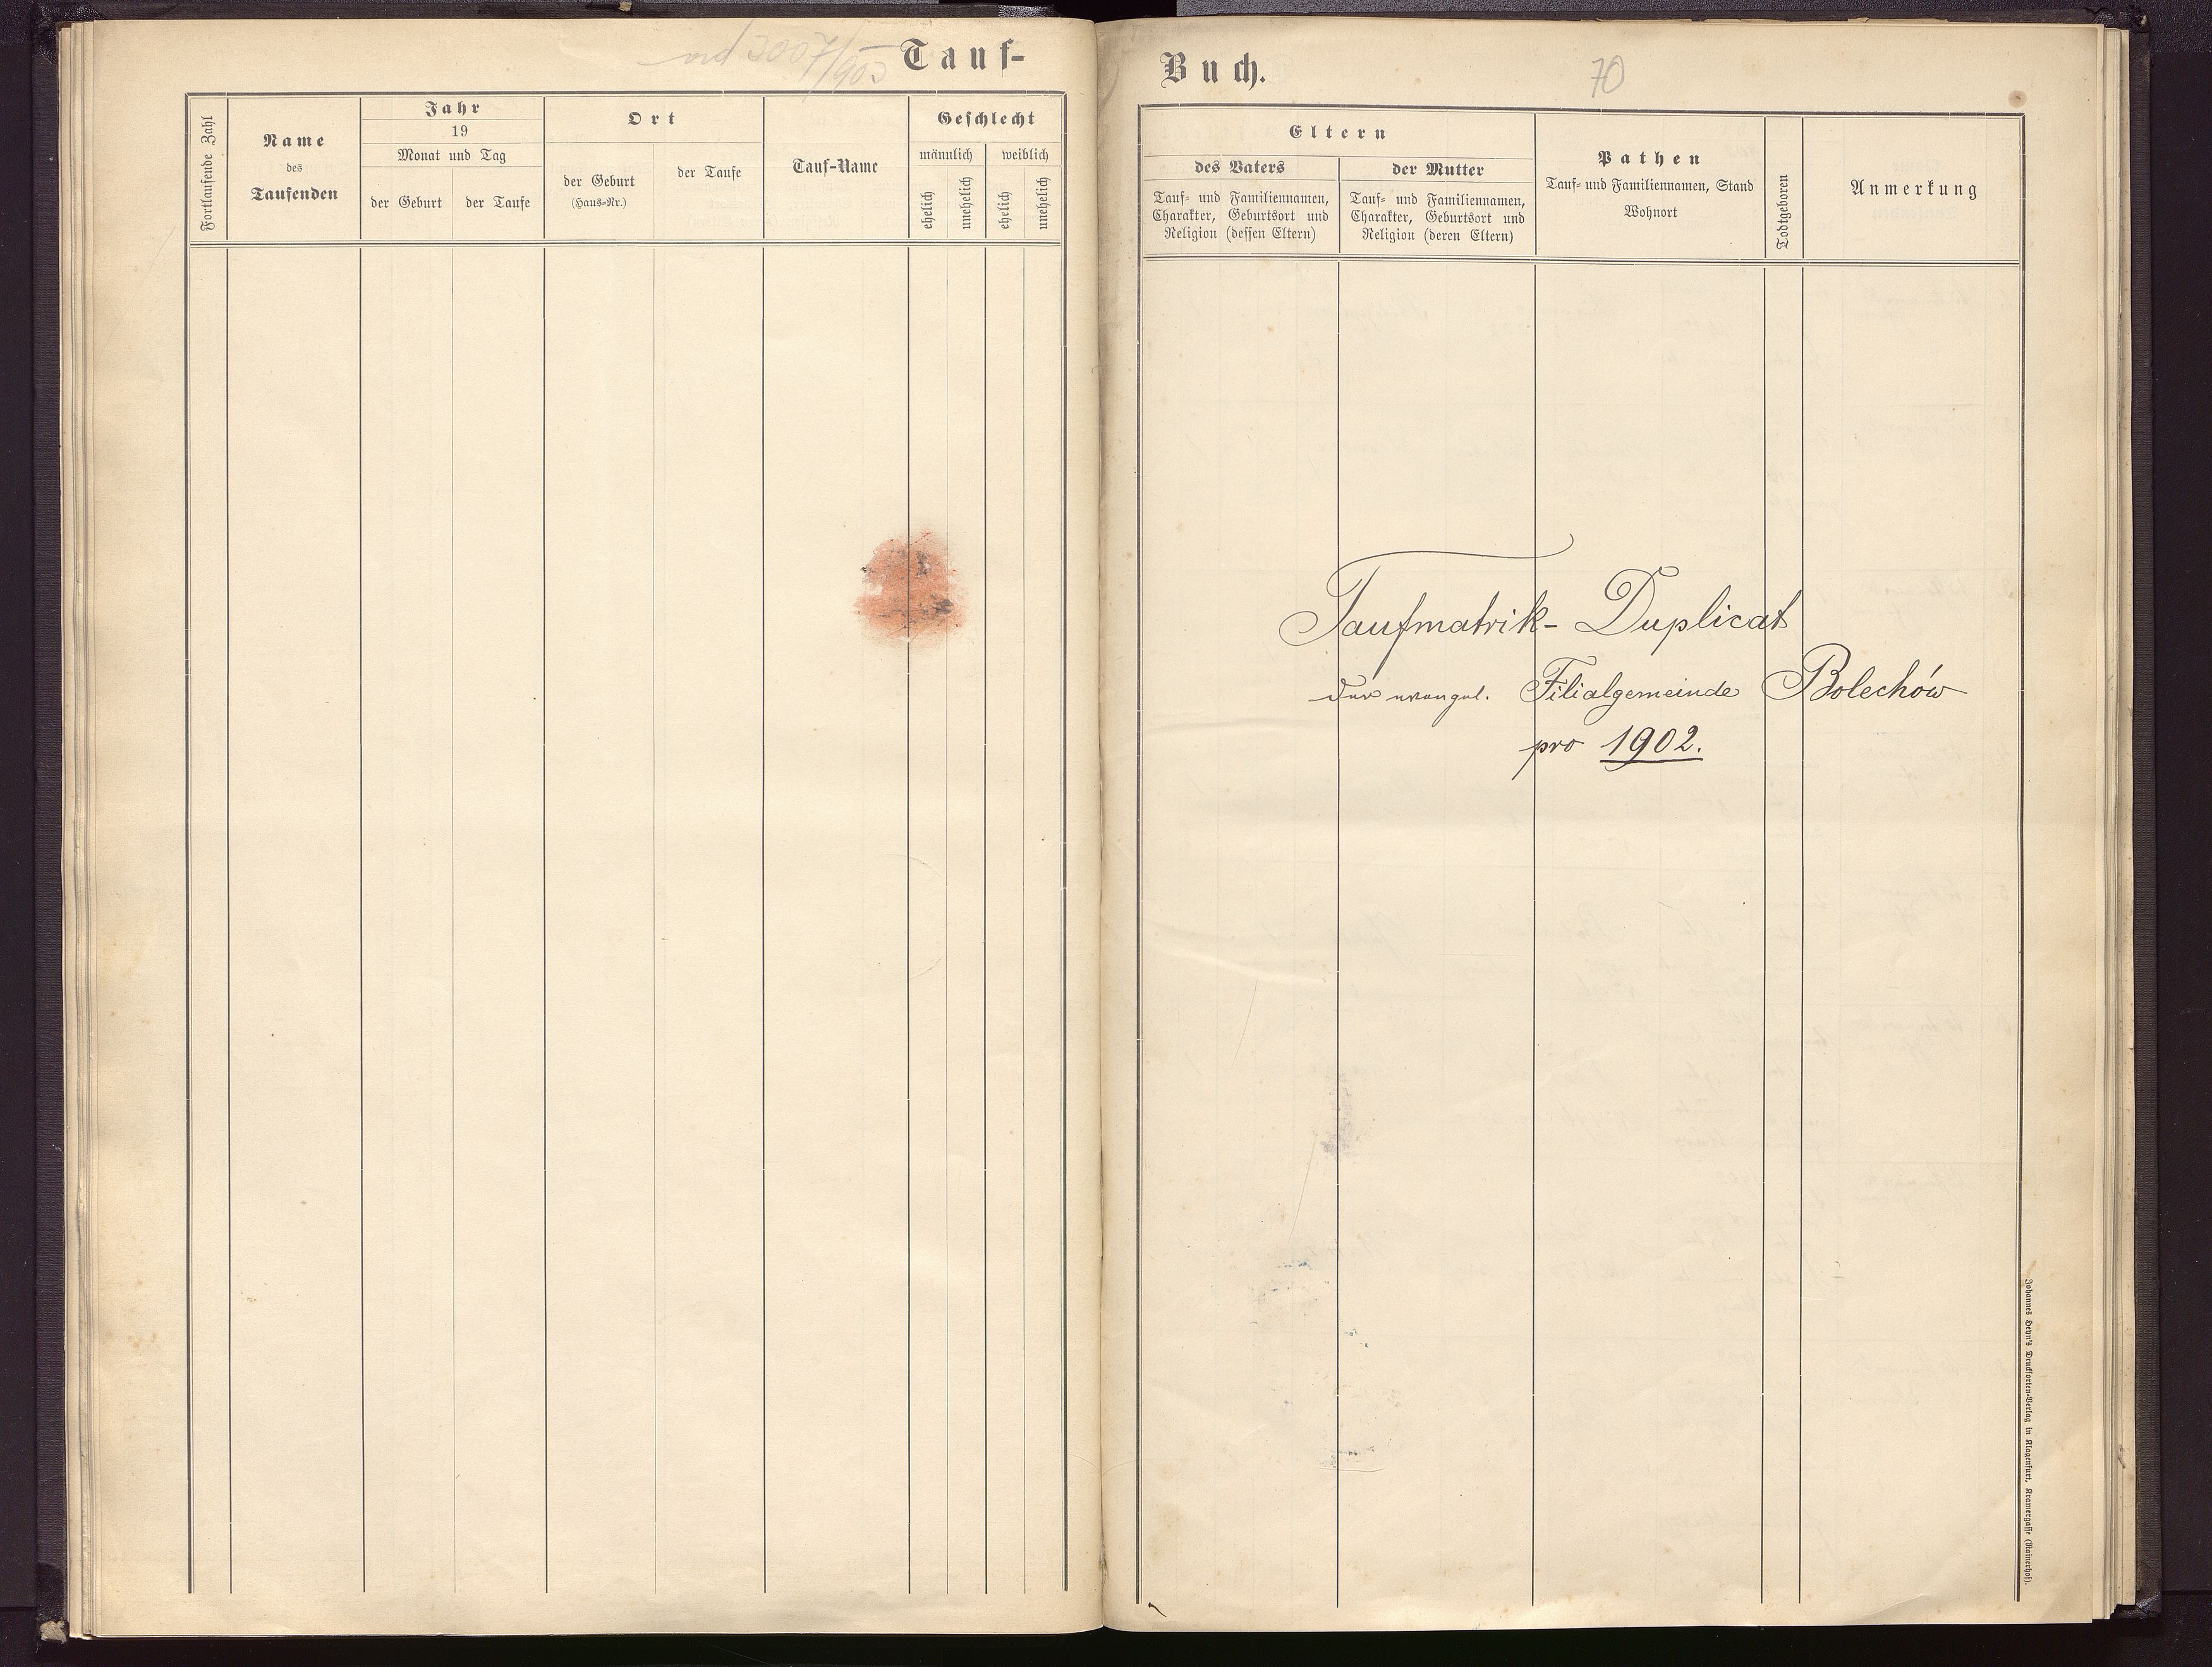 Tauf-
Fortlaufende Zahl
Name
des
Taufenden
Jahr
19
Monat und Tag
der Geburt
der Taufe
Ort
der Geburt
(Haus-Nr.)
der Taufe
Tauf-Name
Geschlecht
männlich
weiblich
ehelich
unehelich
ehelich
unehelich
Buch.
70
Eltern
des Vaters
Tauf- und Familiennamen,
Charakter, Geburtsort und
Religion (dessen Eltern)
der Mutter
Tauf- und Familiennamen,
Charakter, Geburtsort und
Religion (deren Eltern)
Pathen
Tauf- und Familiennamen, Stand
Wohnort
Todtgeboren
Anmerkung
Taufmatrik- Duplicat
der evangel. Filialgemeinde Bolechów
pro 1902.
Johannes Heyn's Drucksorten-Verlag in Klagenfurt, Kramergasse (Rainerhof).